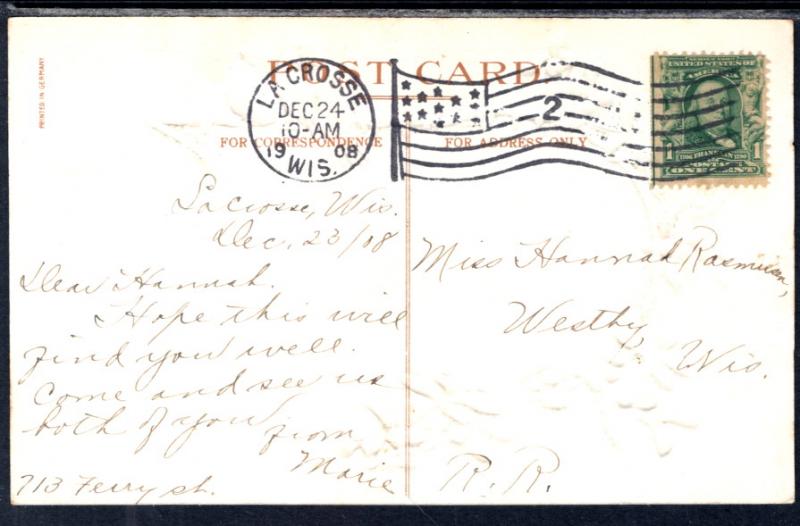 PRINTED IN GERMANY
POST CARD
LA CROSSE
DEC 24
10-AM
1908
WIS.
2
FOR CORRESPONDENCE
FOR ADDRESS ONLY
SERIES 1902
UNITED STATES OF
AMERICA
1 FRANKLIN 1
1706 1790
POSTAGE
ONE CENT
LaCrosse, Wis.
Dec, 23/08
Dear Hannah.
Hope this will
find you well.
Come and see us
both of you
from
Marie
713 Ferry st.
Miss Hannah Rasmusen,
Westby,
Wis.
R. R.